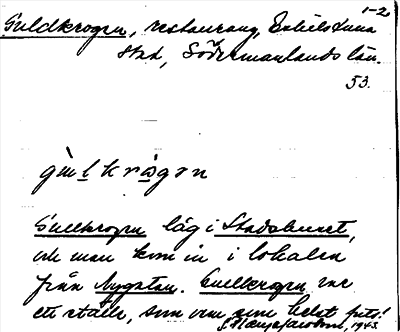 1-2.
Guldkrogen, restaurang, Eskilstuna
stad, Södermanlands län.
53.
gu̇l k rȧ̊gən
Gullkrogen låg i Stadshuset,
och man kom in i lokalen
från Nygatan. Gullkrogen var
ett ställe, som var som helst
1943.